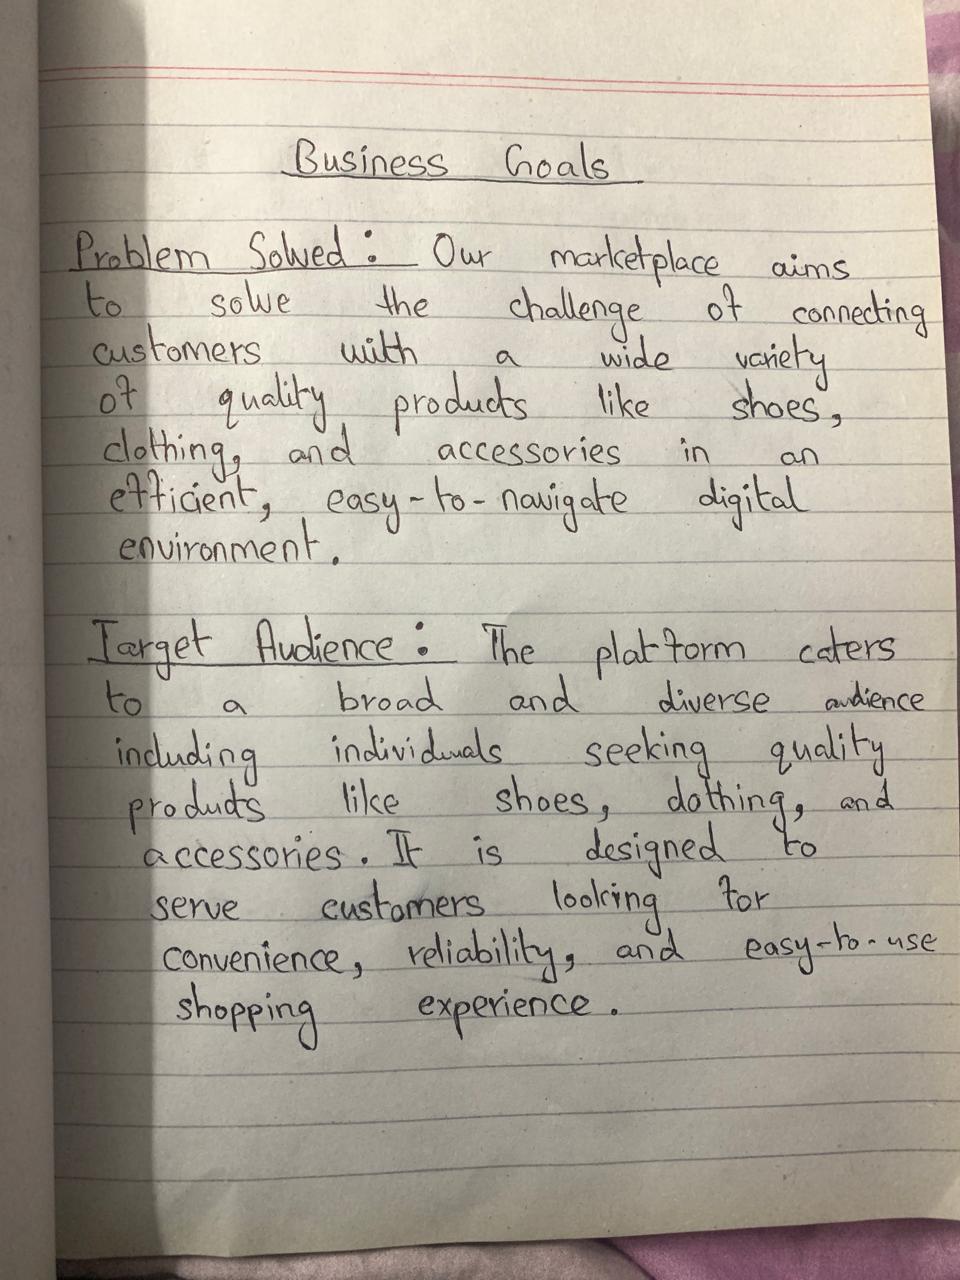 Business Goals
Problem Solved: Our marketplace aims
to solve the challenge of connecting
customers with a wide variety
of quality products like shoes,
clothing, and accessories in an
efficient, easy-to-navigate digital
environment.
Target Audience: The platform caters
to a broad and diverse audience
including individuals seeking quality
products like shoes, clothing, and
accessories. It is designed to
serve customers looking for
convenience, reliability, and easy-to-use
shopping experience.